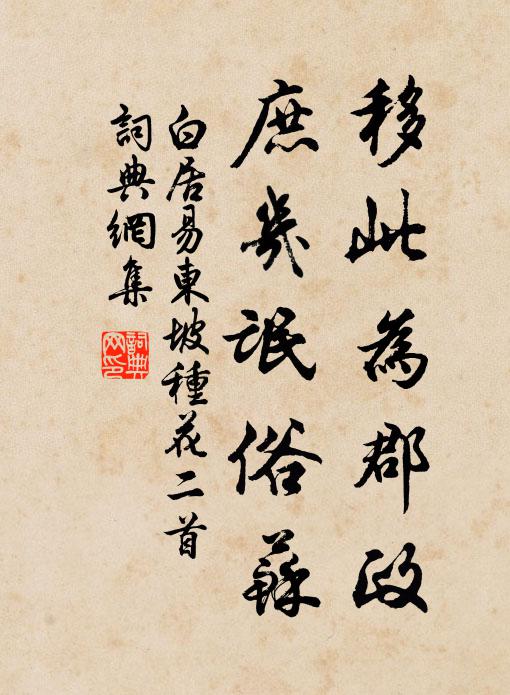 移此為郡政
庶幾氓俗蘇
白居易東坡種花二首
詞典網集
詞典網印